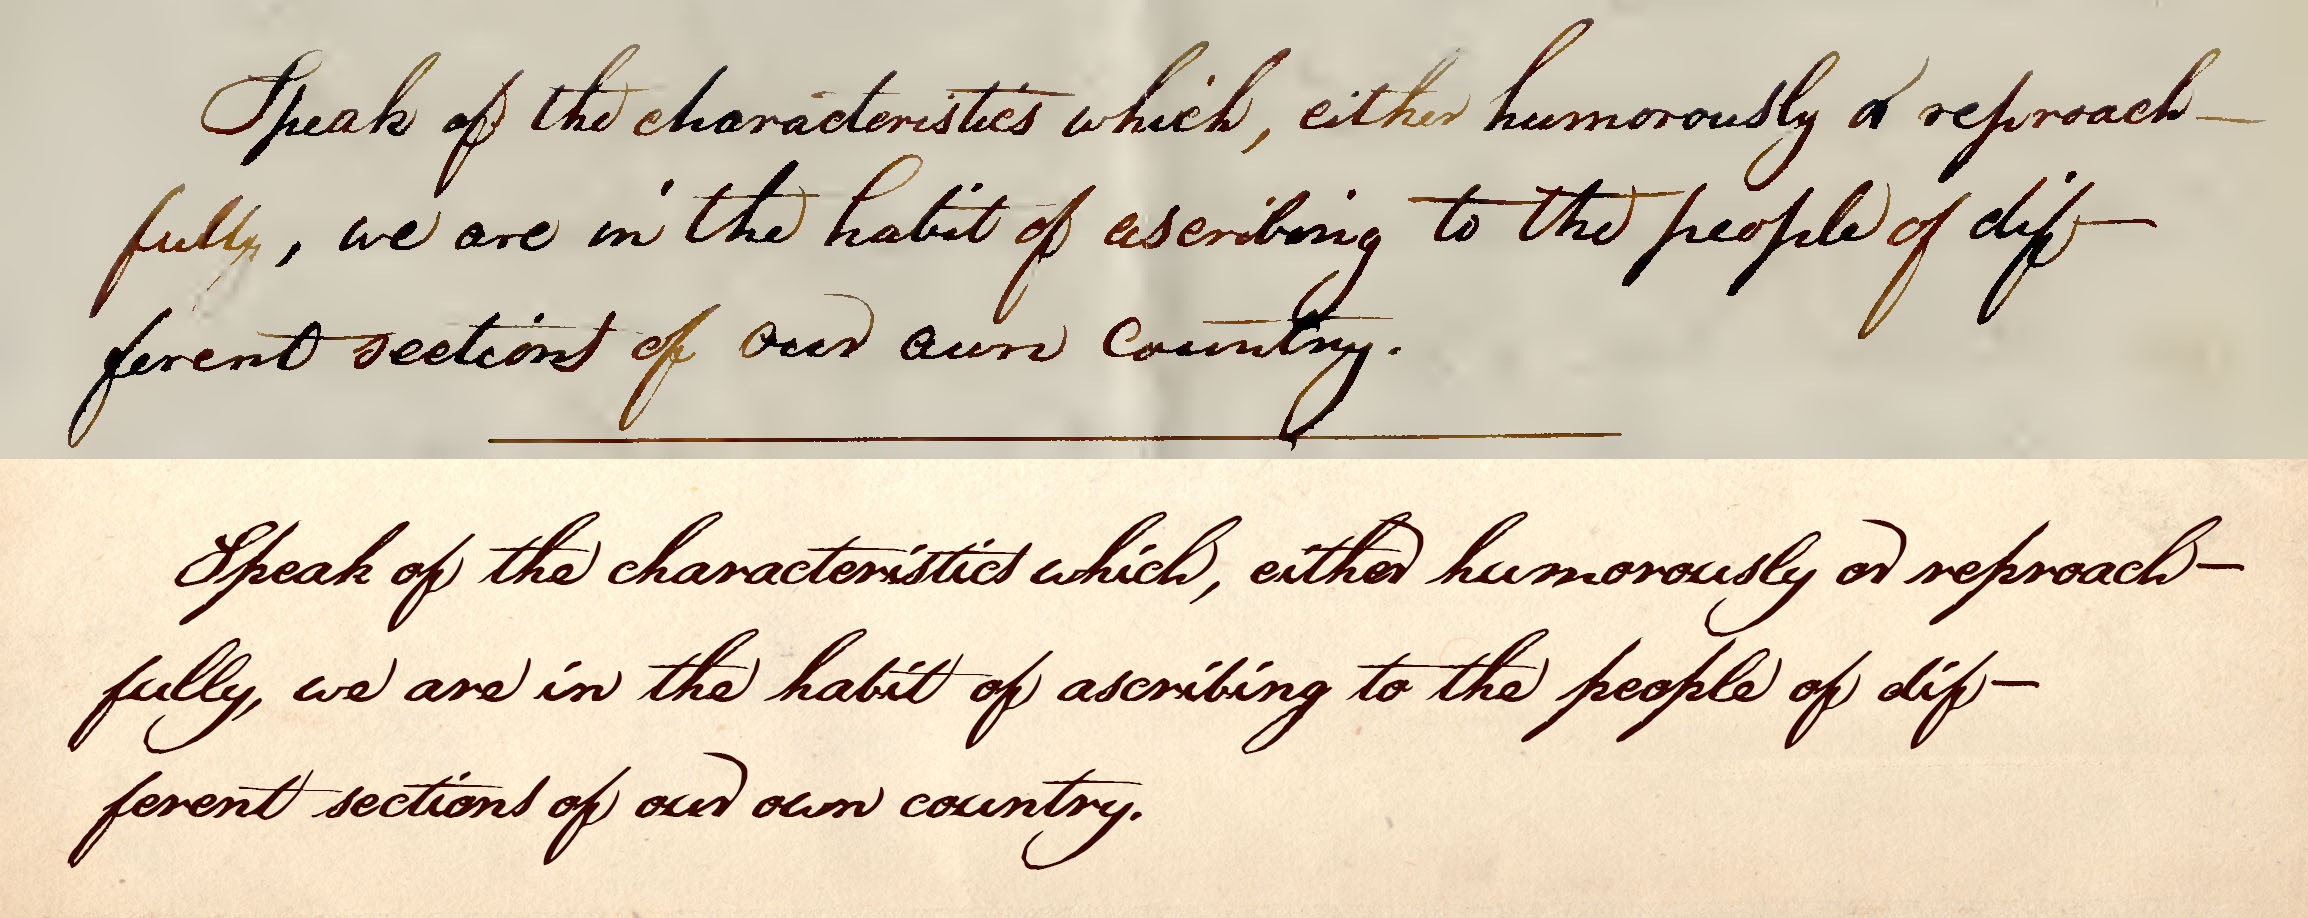 Speak of the characteristics which, either humorously or reproach—
fully, we are in the habit of ascribing to the people of dif—
ferent sections of our own country.
Speak of the characteristics which, either humorously or reproach—
fully, we are in the habit of ascribing to the people of dif—
ferent sections of our own country.